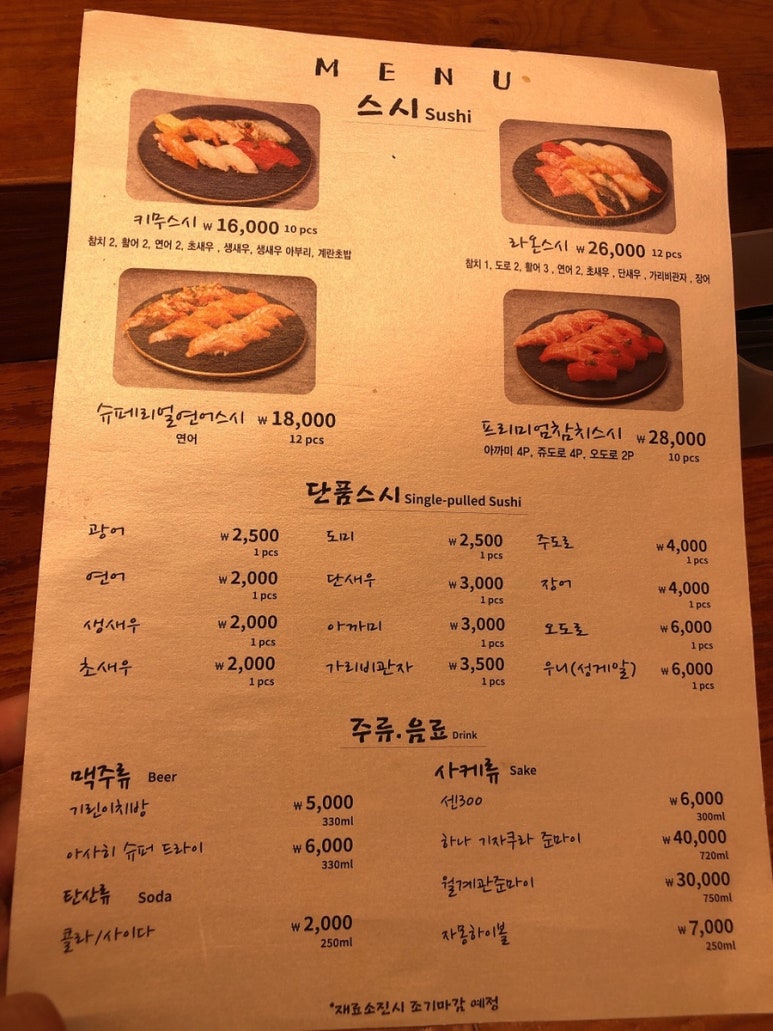 MENU
스시 Sushi
키무스시 ₩ 16,000 10 pcs
참치 2, 활어 2, 연어 2, 초새우 , 생새우, 생새우 아부리, 계란초밥
라온스시 ₩ 26,000 12 pcs
참치 1, 도로 2, 활어 3 , 연어 2, 초새우 , 단새우 , 가리비관자 , 장어
슈페리얼연어스시 ₩ 18,000
연어 12 pcs
프리미엄참치스시 ₩ 28,000
아까미 4P, 쥬도로 4P, 오도로 2P 10 pcs
단품스시 Single-pulled Sushi
광어 ₩ 2,500
1 pcs
연어 ₩ 2,000
1 pcs
생새우 ₩ 2,000
1 pcs
초새우 ₩ 2,000
1 pcs
도미 ₩ 2,500
1 pcs
단새우 ₩ 3,000
1 pcs
아까미 ₩ 3,000
1 pcs
가리비관자 ₩ 3,500
1 pcs
주도로 ₩ 4,000
1 pcs
장어 ₩ 4,000
1 pcs
오도로 ₩ 6,000
1 pcs
우니(성게알) ₩ 6,000
1 pcs
주류.음료 Drink
맥주류 Beer
기린이치방 ₩ 5,000
330ml
아사히 슈퍼 드라이 ₩ 6,000
330ml
탄산류 Soda
콜라/사이다 ₩ 2,000
250ml
사케류 Sake
센300 ₩ 6,000
300ml
하나 기자쿠라 준마이 ₩ 40,000
720ml
월계관준마이 ₩ 30,000
750ml
자몽하이볼 ₩ 7,000
250ml
*재료소진시 조기마감 예정